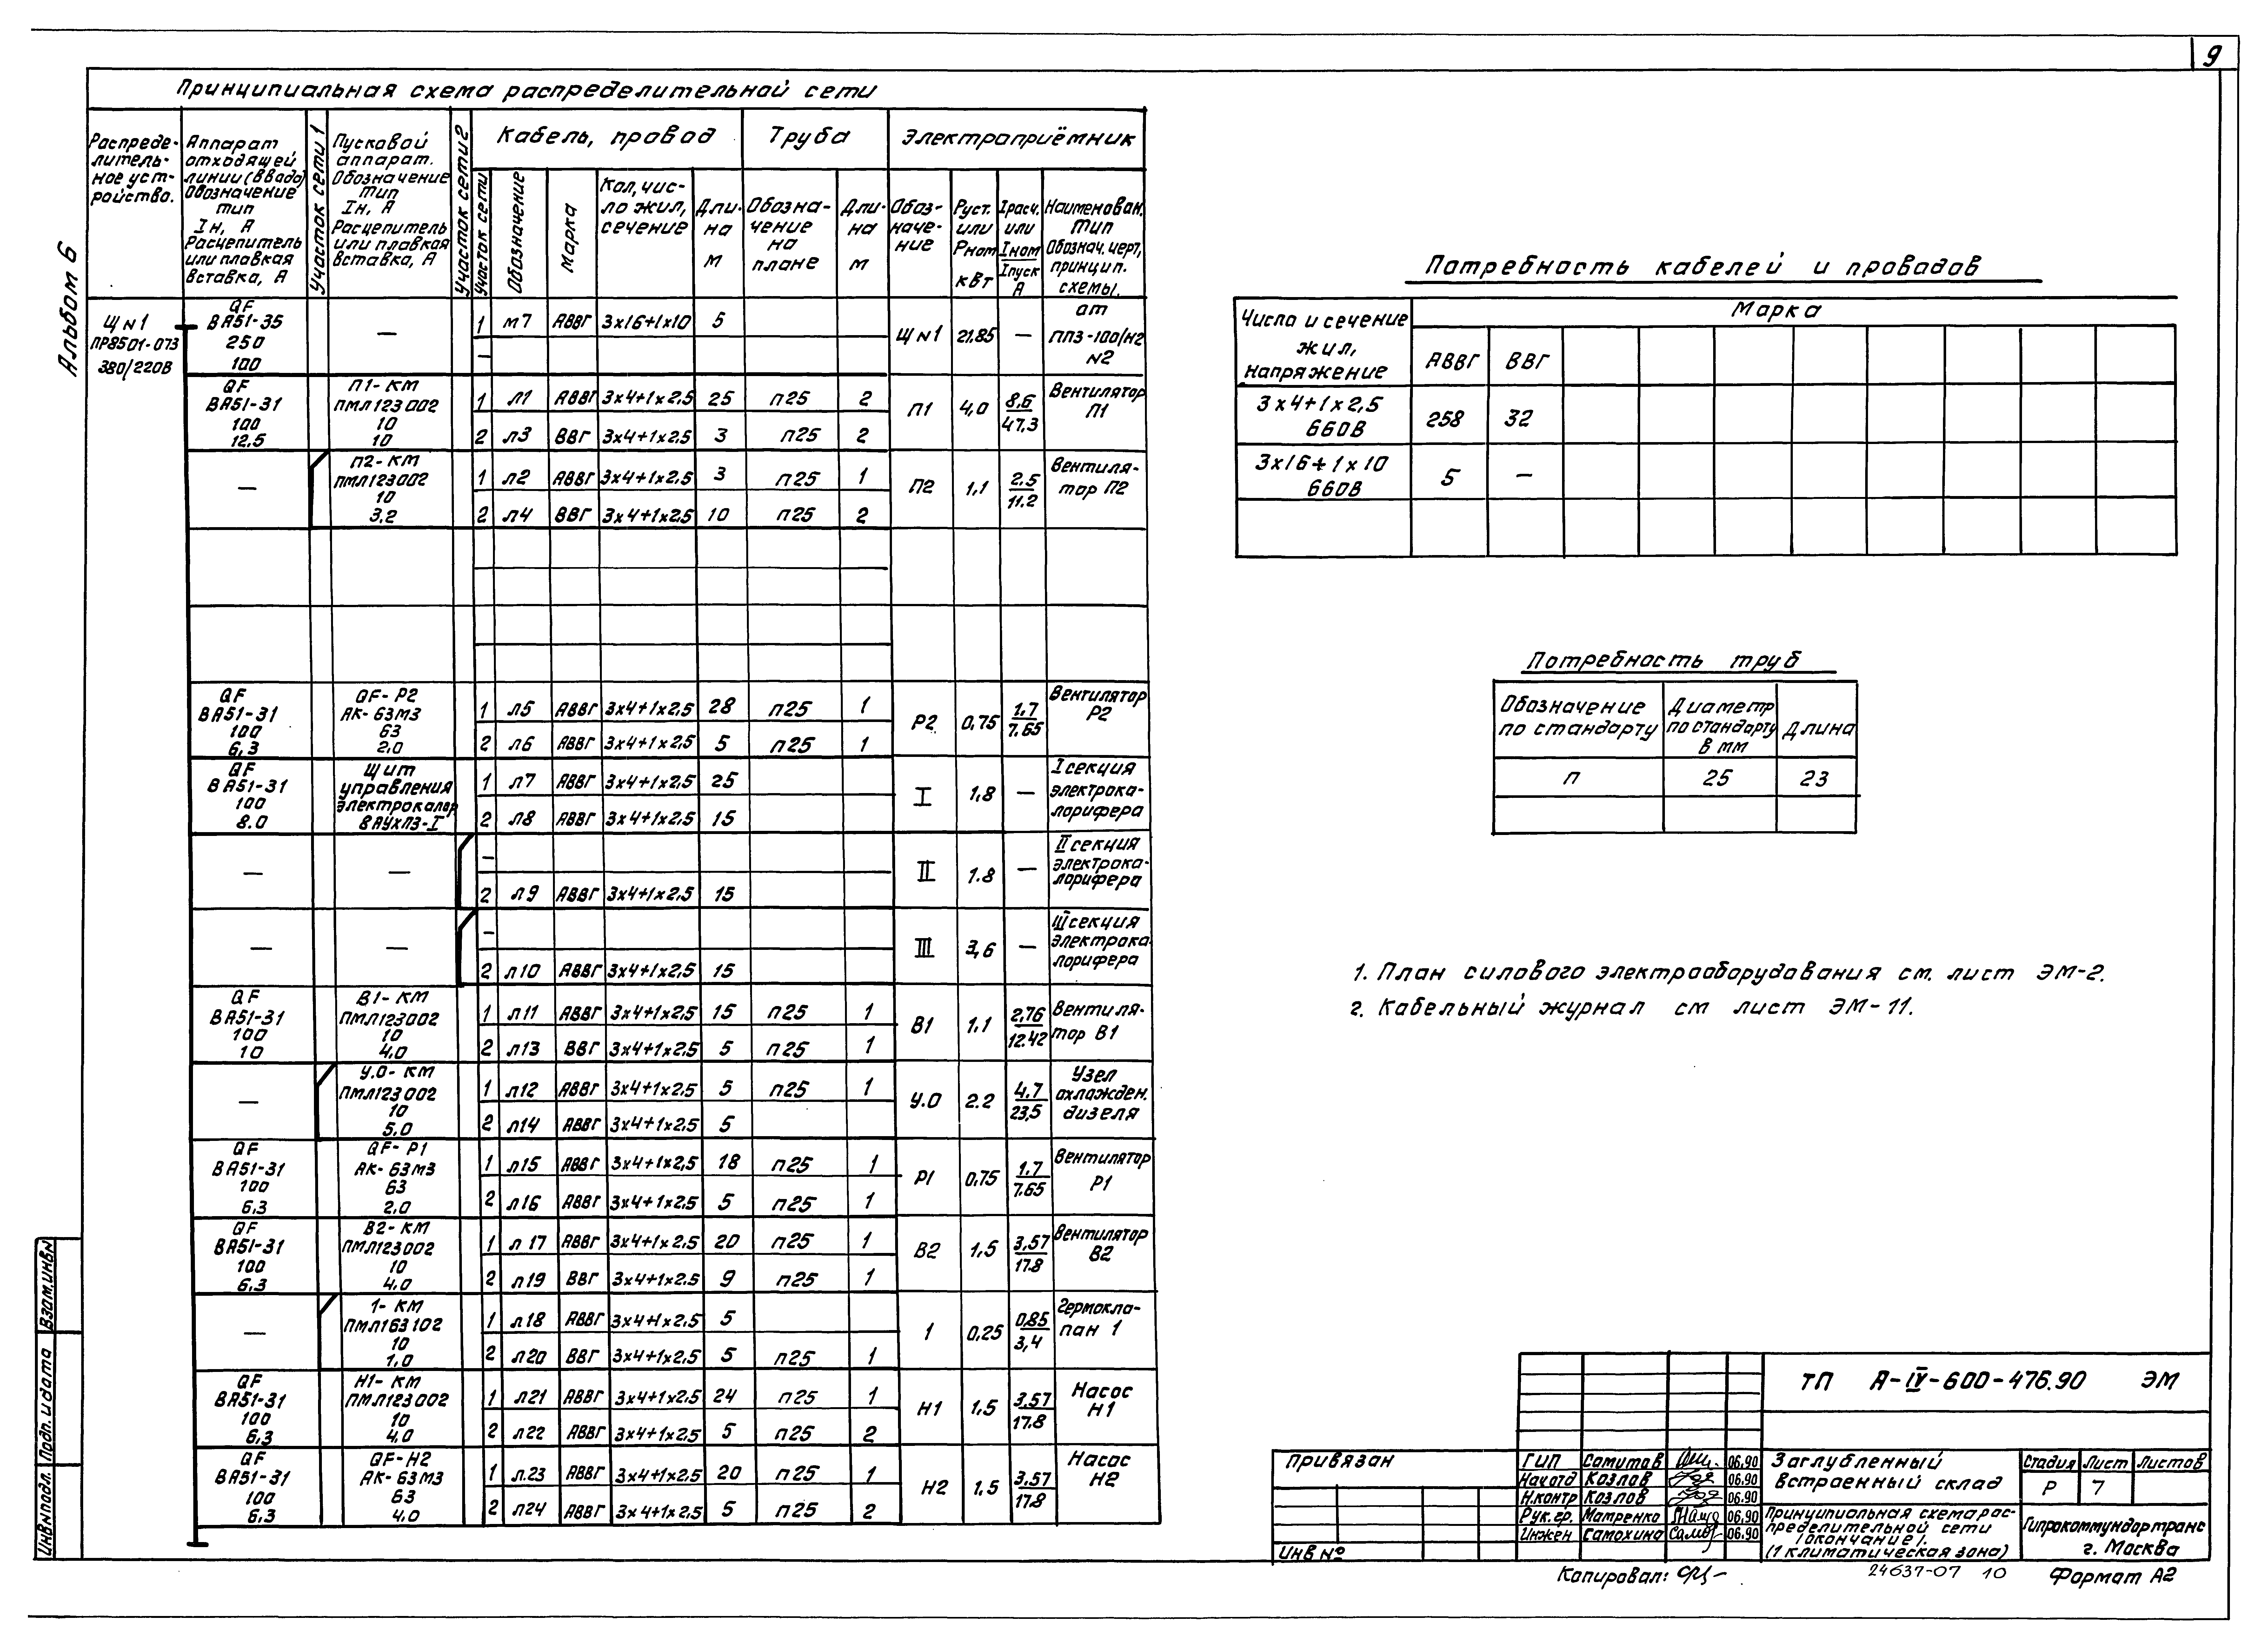 9
Альбом 6
Принципиальная схема распределительной сети
Распреде-
литель-
ное уст-
ройство.
Аппарат
отходящей
линии (ввода)
Обозначение
тип
Iн, А
Расцепитель
или плавкая
вставка, А
Участок сети 1
Пусковой
аппарат.
Обозначение
тип
Iн, А
Расцепитель
или плавкая
вставка, А
Участок сети 2
Кабель, провод
Участок сети
Обозначение
Марка
Кол, чис-
ло жил,
сечение
Дли-
на
м
Труба
Обозна-
чение
на
плане
Дли-
на
м
Электроприёмник
Обоз-
наче-
ние
Руст.
или
Рном
кВт
Iрасч.
или
Iном
Iпуск
А
Наименован.
тип
Обознач. черт,
принцип.
схемы.
Щ N1
ПР8501-073
380/220В
QF
ВА51-35
250
100
—
1 М7 АВВГ 3x16+1x10 5
—
Щ N1 21.85 —
от
ПП3-100/Н2
N2
QF
ВА51-31
100
12.5
П1-КМ
ПМЛ123002
10
10
1 Л1 АВВГ 3x4+1x2.5 25 П25 2
2 Л3 ВВГ 3x4+1x2.5 3 П25 2
П1 4,0 8,6
47,3
Вентилятор
П1
—
П2-КМ
ПМЛ123002
10
3,2
1 Л2 АВВГ 3x4+1x2.5 3 П25 1
2 Л4 ВВГ 3x4+1x2.5 10 П25 2
П2 1,1 2.5
11.2
Вентиля-
тор П2
QF
ВА51-31
100
6,3
QF-Р2
АК-63МЗ
63
2,0
1 Л5 АВВГ 3x4+1x2,5 28 П25 1
2 Л6 АВВГ 3x4+1x2.5 5 П25 1
Р2 0,75 1.7
7.65
Вентилятор
Р2
QF
ВА51-31
100
8.0
Щит
управления
электрокалор
ВАУХПЗ-I
1 Л7 АВВГ 3x4+1x2.5 25
2 Л8 АВВГ 3x4+1x2.5 15
I 1,8 —
I секция
электрока-
лорифера
— —
—
2 Л9 АВВГ 3x4+1x2.5 15
II 1.8 —
II секция
электрока-
лорифера
— —
—
2 Л10 АВВГ 3x4+1x2,5 15
III 3,6 —
III секция
электрока-
лорифера
QF
ВА51-31
100
10
В1-КМ
ПМЛ123002
10
4,0
1 Л11 АВВГ 3x4+1x2.5 15 П25 1
2 Л13 ВВГ 3x4+1x2.5 5 П25 1
В1 1,1 2,76
12.42
Вентиля-
тор В1
—
У.О-КМ
ПМЛ123002
10
5,0
1 Л12 АВВГ 3x4+1x2.5 5 П25 1
2 Л14 АВВГ 3x4+1x2.5 5
У.О 2.2 4.7
23,5
Узел
охлажден.
дизеля
QF
ВА51-31
100
6,3
QF-Р1
АК-63МЗ
63
2,0
1 Л15 АВВГ 3x4+1x2,5 18 П25 1
2 Л16 АВВГ 3x4+1x2.5 5 П25 1
Р1 0,75 1.7
7.65
Вентилятор
Р1
QF
ВА51-31
100
6,3
В2-КМ
ПМЛ123002
10
4,0
1 Л17 АВВГ 3x4+1x2.5 20 П25 1
2 Л19 ВВГ 3x4+1x2.5 9 П25 1
В2 1,5 3,57
17.8
Вентилятор
В2
—
1-КМ
ПМЛ163102
10
1,0
1 Л18 АВВГ 3x4+1x2,5 5
2 Л20 ВВГ 3x4+1x2,5 5 П25 1
1 0,25 0,85
3,4
Гермокла-
пан 1
QF
ВА51-31
100
6,3
Н1-КМ
ПМЛ123002
10
4,0
1 Л21 АВВГ 3x4+1x2.5 24 П25 1
2 Л22 АВВГ 3x4+1x2.5 5 П25 2
Н1 1,5 3,57
17.8
Насос
Н1
QF
ВА51-31
100
6,3
QF-Н2
АК-63МЗ
63
4,0
1 Л.23 АВВГ 3x4+1x2.5 20 П25 1
2 Л24 АВВГ 3x4+1x2.5 5 П25 2
Н2 1,5 3,57
17.8
Насос
Н2
Потребность кабелей и проводов
Число и сечение
жил,
напряжение
Марка
АВВГ ВВГ
3x4+1x2,5
660В
258 32
3x16+1x10
660В
5 —
Потребность труб
Обозначение
по стандарту
Диаметр
по стандарту
в мм
Длина
П 25 23
1. План силового электрооборудования см. лист ЭМ-2.
2. Кабельный журнал см лист ЭМ-11.
Привязан
Инв №
ТП А-IV-600-476.90 ЭМ
ГИП Самитов 06.90
Нач отд Козлов 06.90
Н.контр Козлов 06.90
Рук.гр. Матренко 06.90
Инжен Самохина 06.90
Заглубленный
встроенный склад
Стадия Лист Листов
Р 7
Принципиальная схема рас-
пределительной сети
(окончание).
(1 климатическая зона)
Гипрокоммундортранс
г. Москва
Копировал:
24637-07 10
Формат А2
Инв N подл.
Подп. и дата
Взам. инв N